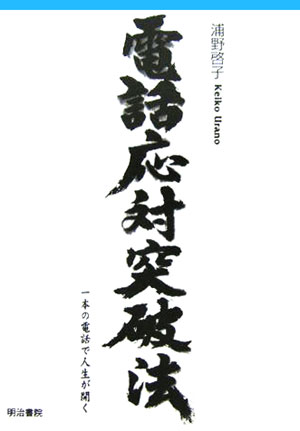 浦野啓子 Keiko Urano
電話応対突破法
一本の電話で人生が開く
明治書院